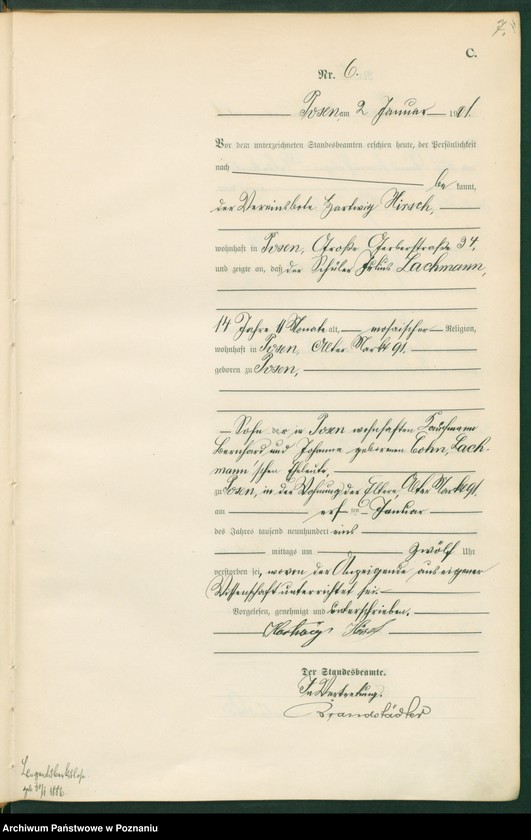 7.
C.
Nr. 6.
Posen, am 2 Januar 1901.
Vor dem unterzeichneten Standesbeamten erschien heute, der Persönlichkeit
nach
be kannt,
der Vereinsbote Hartwig Hirsch,
wohnhaft in Posen, Große Gerberstraße 34,
und zeigte an, daß der Schüler Julius Lachmann,
14 Jahre 11 Monate alt, mosaischer Religion,
wohnhaft in Posen, Alter Markt 91.
geboren zu Posen,
Sohn der in Posen wohnhaften Kaufmann
Bernhard und Johanna geborenen Cohn, Lach-
mann'schen Eheleute,
zu Posen, in der Wohnung der Eltern, Alter Markt 91.
am ersten Januar
des Jahres tausend neunhundert eins
mittags um zwölf Uhr
verstorben sei, wovon der Anzeigende aus eigener
Wissenschaft unterrichtet sei.
Vorgelesen, genehmigt und unterschrieben.
Hartwig Hirsch
Der Standesbeamte.
In Vertretung.
Brandstädter
Archiwum Państwowe w Poznaniu